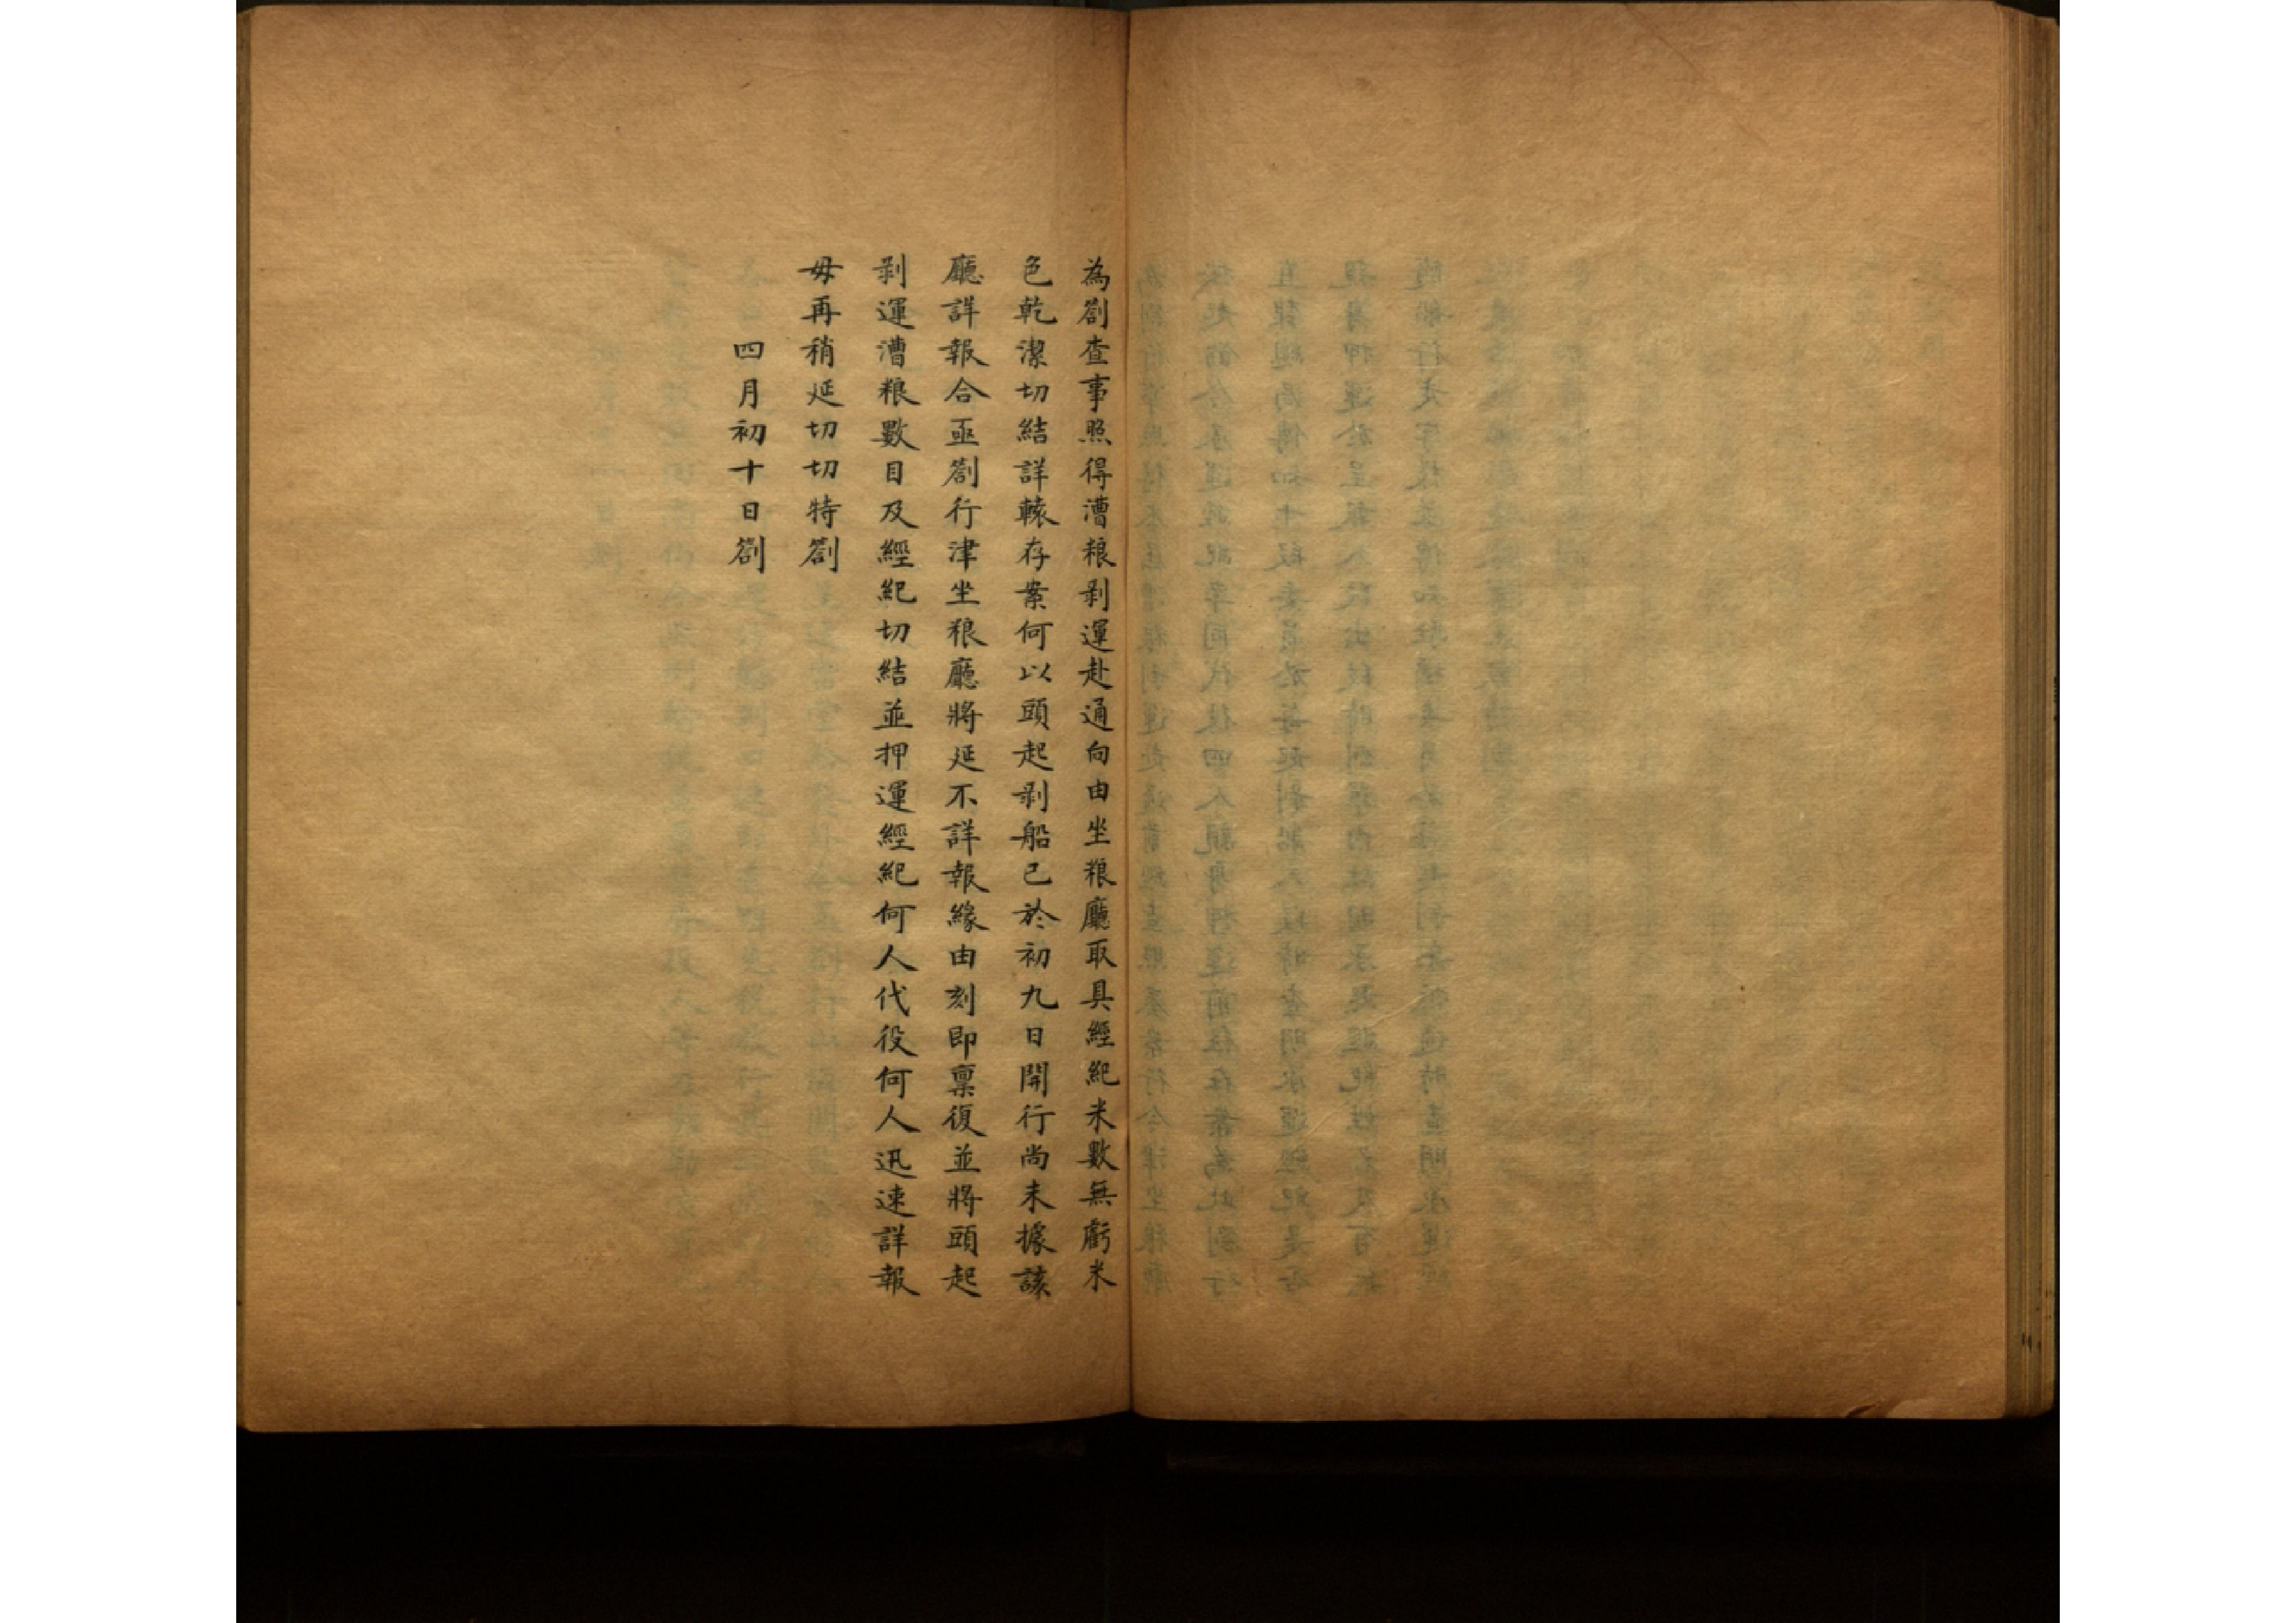 為劄查事照得漕粮剥運赴通向由坐粮廳取具經紀米數無虧米
色乾潔切結詳轅存案何以頭起剥船已於初九日開行尚未據該
廳詳報合亟劄行津坐粮廳將延不詳報緣由刻即禀復並將頭起
剥運漕粮數目及經紀切結並押運經紀何人代役何人迅速詳報
毋再稍延切切特劄
四月初十日劄